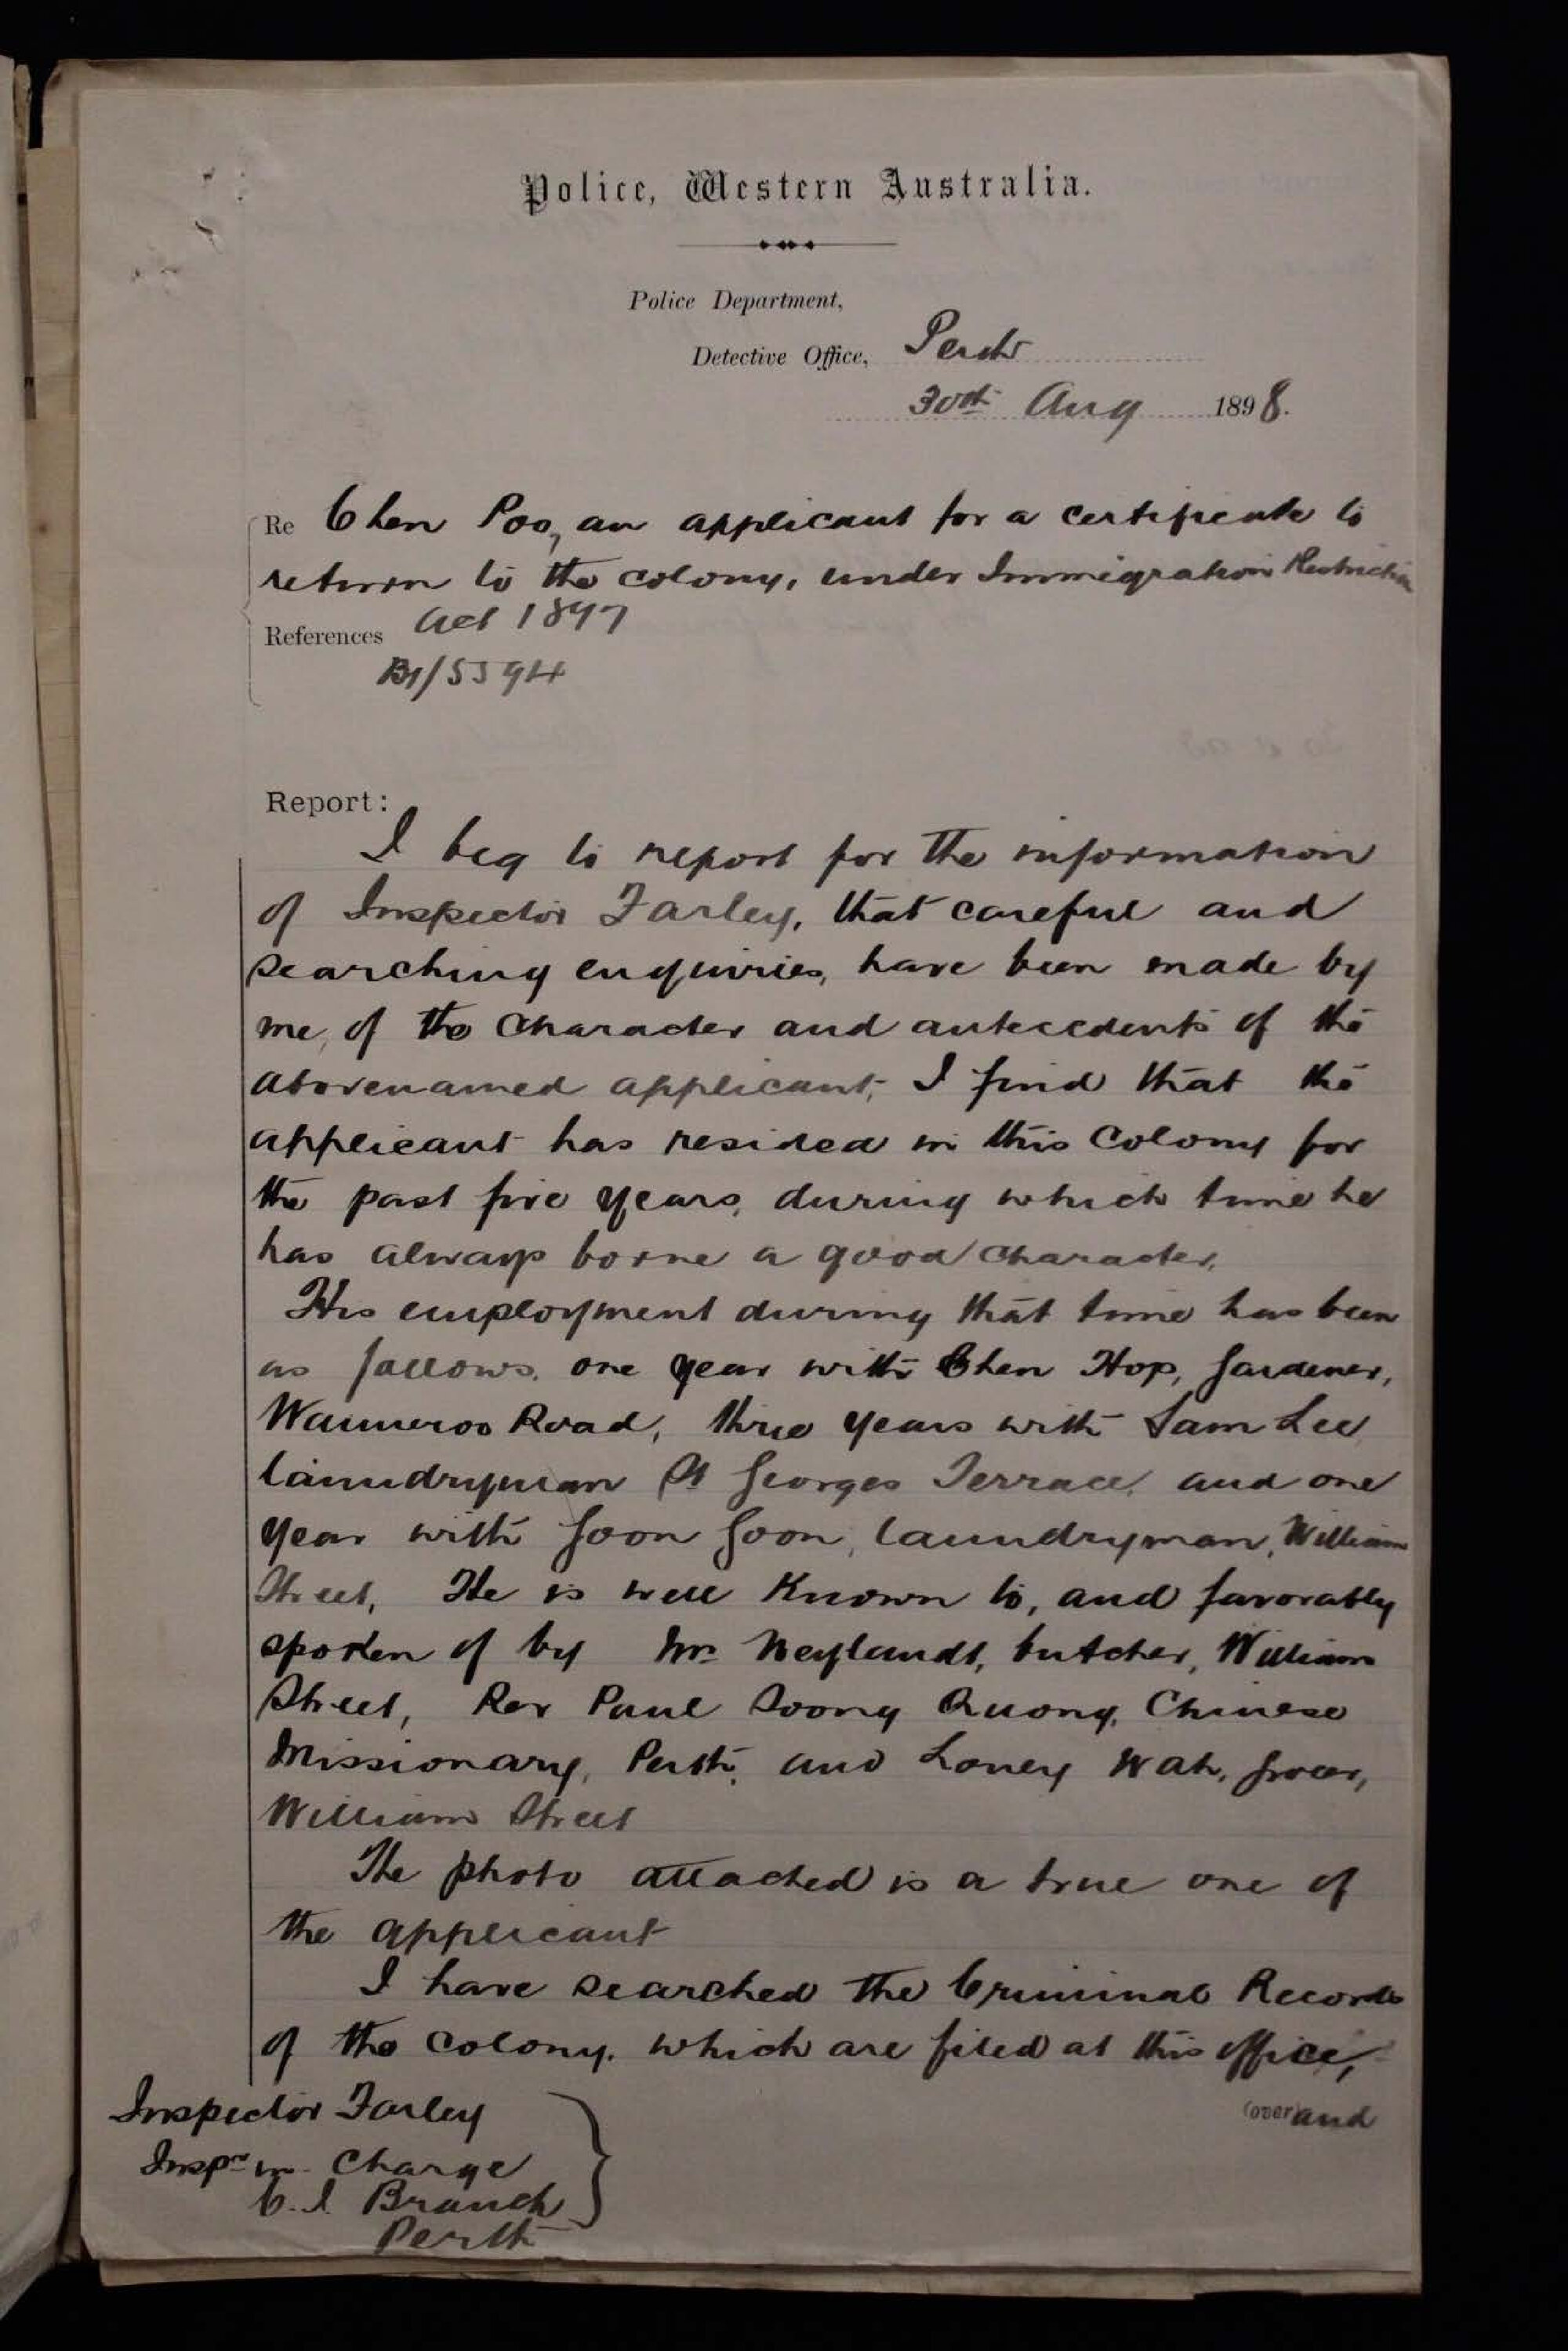 Police, Western Australia.
Police Department,
Detective Office, Perth
30th Aug 1898.
Re Chen Poo, an applicant for a certificate to
return to the colony, under Immigration Restriction
Act 1897
References
B1/5594
Report:
I beg to report for the information
of Inspector Farley, that careful and
searching enquiries, have been made by
me, of the character and antecedents of the
abovenamed applicant; I find that the
applicant has resided in this Colony for
the past five years, during which time he
has always borne a good character.
His employment during that time has been
as follows. one year with Chen Hop, Gardener,
Wanneroo Road, three years with Sam Lee
laundryman St Georges Terrace, and one
year with Goon Goon, laundryman, William
Street, He is well known to, and favorably
spoken of by Mr Neylandt, butcher, William
Street, Rev Paul Soong Quong, Chinese
Missionary, Perth, and Loney Wah, grocer,
William Street
The photo attached is a true one of
the applicant
I have searched the Criminal Records
of the colony. which are filed at this office,
(over) and
Inspector Farley
Inspr in Charge
C. I. Branch
Perth